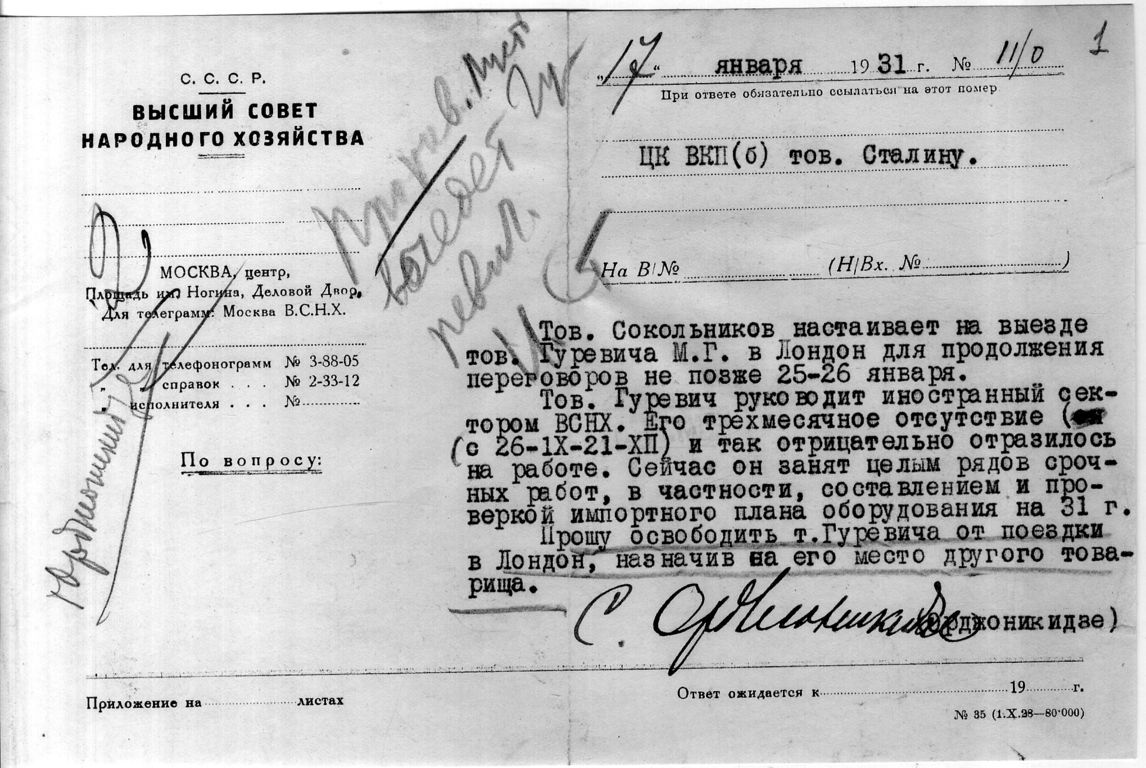 С. С. С. Р.
ВЫСШИЙ СОВЕТ
НАРОДНОГО ХОЗЯЙСТВА
МОСКВА, центр,
Площадь им. Ногина, Деловой Двор,
Для телеграмм: Москва В.С.Н.Х.
Тел. для телефонограмм № 3-88-05
„ „ справок . . . № 2-33-12
„ исполнителя . . . №
По вопросу:
Орджоникидзе
Против. Пусть
выедет Гу-
ревич.
И С
1
„17“ января 1931 г. № 11/0
При ответе обязательно ссылаться на этот номер
ЦК ВКП(б) тов. Сталину.
На В/№ (Н/Вх. № )
Тов. Сокольников настаивает на выезде
тов. Гуревича М.Г. в Лондон для продолжения
переговоров не позже 25-26 января.
Тов. Гуревич руководит иностранный сек-
тором ВСНХ. Его трехмесячное отсутствие (
(с 26-1Х-21-ХП) и так отрицательно отразилось
на работе. Сейчас он занят целым рядов сроч-
ных работ, в частности, составлением и про-
веркой импортного плана оборудования на 31 г.
Прошу освободить т.Гуревича от поездки
в Лондон, назначив на его место другого това-
рища.
С. Орджоникидзе
(Орджоникидзе)
Приложение на листах
Ответ ожидается к 19 г.
№ 35 (1.X.28—80·000)